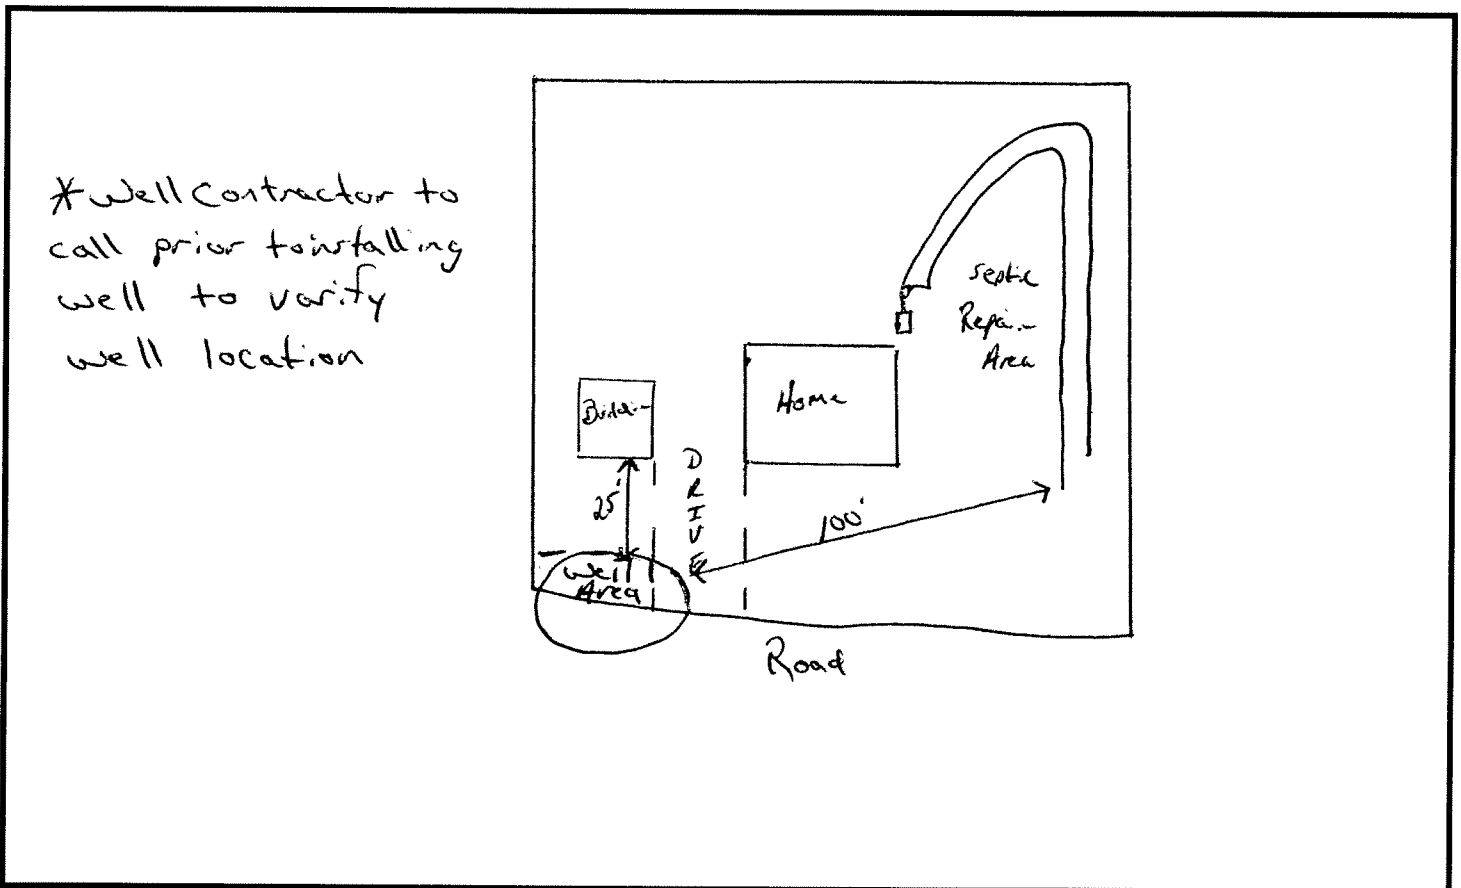 *Well Contractor to
call prior to installing
well to varify
well location
Septic
Repair
Area
Home
Building
DRIVE
25'
100'
Well
Area
Road